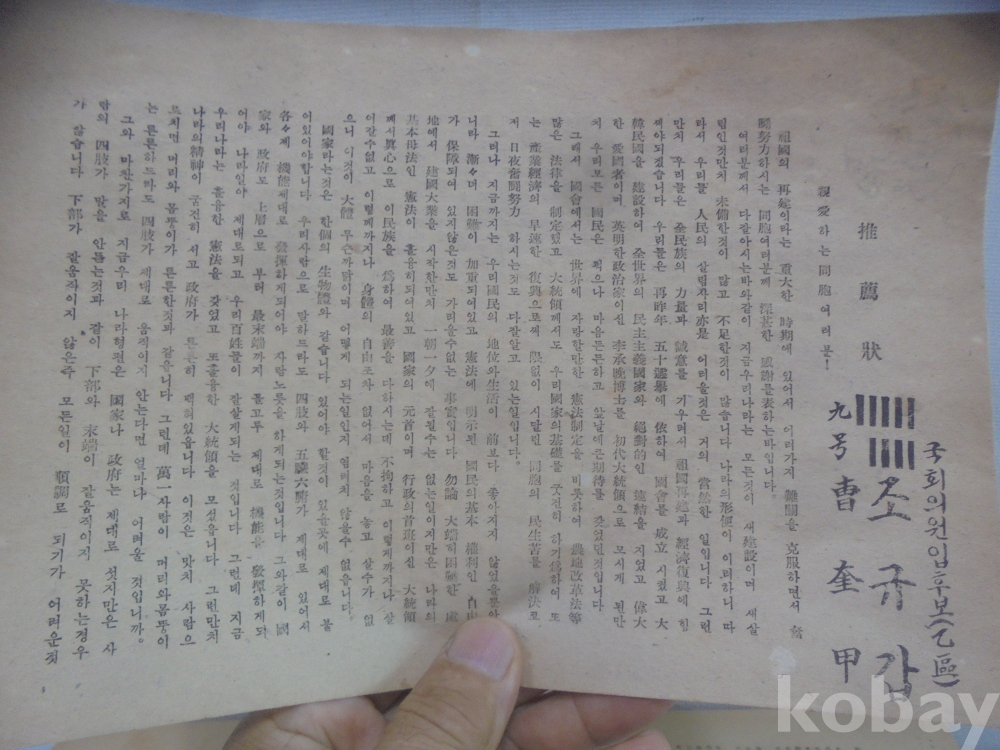 국회의원입후보(乙區)
조규갑
九号 曺奎甲
推薦狀
親愛하는同胞여러분!
祖國의 再建이라는 重大한 時期에 있어서 여러가지 難關을 克服하면서 奮
鬪努力하시는 同胞여러분께 深甚한 感謝를表하는바입니다.
여러분께서 다잘아시는바와같이 지금우리나라는 모든것이 새建設이며 새살
림인것만치 未備한것이 많고 不足한것이 많습니다 나라의形便이 이러하니 따
라서 우리들 人民의 살림사리亦是 어려울것은 거의 當然한 일입니다 그런
만치 우리들은 全民族의 力量과 誠意를 기우려서 祖國再建과 經濟復興에 힘
써야되겠습니다 우리들은 再昨年 五十選擧에 依하여 國會를 成立 시켰고 大
韓民國을 建設하여 全世界의 民主主義國家와 絕對的인 連結을 지었고 偉大
한 愛國者이며 英明한政治家이신 李承晩博士를 初代大統領으로 모시게 된만
치 우리모든 國民은 적으나 마음든든하고 앞날에큰期待를 갖었던것입니다
그래서 國會에서는 世界에 자랑할만한 憲法制定을 비롯하여 農地改革法等
많은 法律을 制定했고 大統領께서도 우리國家의基礎를 굳건히 하기爲하여 또
는 產業經濟의 早速한 復興으로써 限없이 시달린 同胞의 民生苦를 解決코
저 日夜奮鬪努力 하시는것도 다잘알고 있는일입니다.
그러나 지금까지는 우리國民의 地位와生活이 前보다 좋아지지 않었을뿐아
니라 漸々더 困難이 加重되여있고 憲法에 明示된 國民의基本 權利인 自由
가 保障되여 있지않은것도 가리울수없는 事實입니다 勿論 大端히困難한 處
地에서 建國大業을 시작한만치 一朝一夕에 잘될수는 없는일이지만은 나라의
基本母法인 憲法이 훌융히되여있고 國家의 元首이며 行政의首班이신 大統領
께서眞心으로 이民族을 爲하여 最善을 다하시는데 不拘하고 이렇께까지나 살
어갈수없고 이렇께까지나 身體의 自由조차 없어서 마음을 놓고 살수가 없
으니 이것이 大體 무슨까닭이며 어떻게 되는일인지 염려치 않을수 없읍니다.
國家라는것은 한個의 生物體와 같습니다 있어야 할것이 있을곳에 제대로 붙
어있어야합니다 우리사람으로 말하드라도 四肢와 五臟六腑가 제대로 있어서
各々제 機能제대로 發揮하게되어야 사람노릇을 하게되는것입니다 그와같이 國
家와 政府도 上層으로 부터 最末端까지 골고루 제대로 機能을 發揮하게되
어야 나라일이 제대로되고 우리百姓들이 잘살게되는 것입니다 그런데 지금
우리나라는 훌융한 憲法을 갖었고 또훌융한 大統領을 모섰읍니다 그런만치
나라의精神이 굳건히 서고 政府가 튼튼히 백혀있읍니다 이것은 맛치 사람으
로치면 머리와 몸뚱이가 튼튼한것과 같읍니다 그런데 萬一 사람이 머리와몸뚱이
는 튼튼하드라도 四肢가 제대로 움직이지 안는다면 얼마나 어려울 것입니까.
그와 마찬가지로 지금우리 나라형편은 國家나 政府는 제대로 섯지만은 사
람의 四肢가 말을 안듣는것과 같이 下部와 末端이 잘움직이지 못하는경우
가 많습니다 下部가 잘움직이지 않은주 모든일이 順調로 되기가 어려운것
kobay